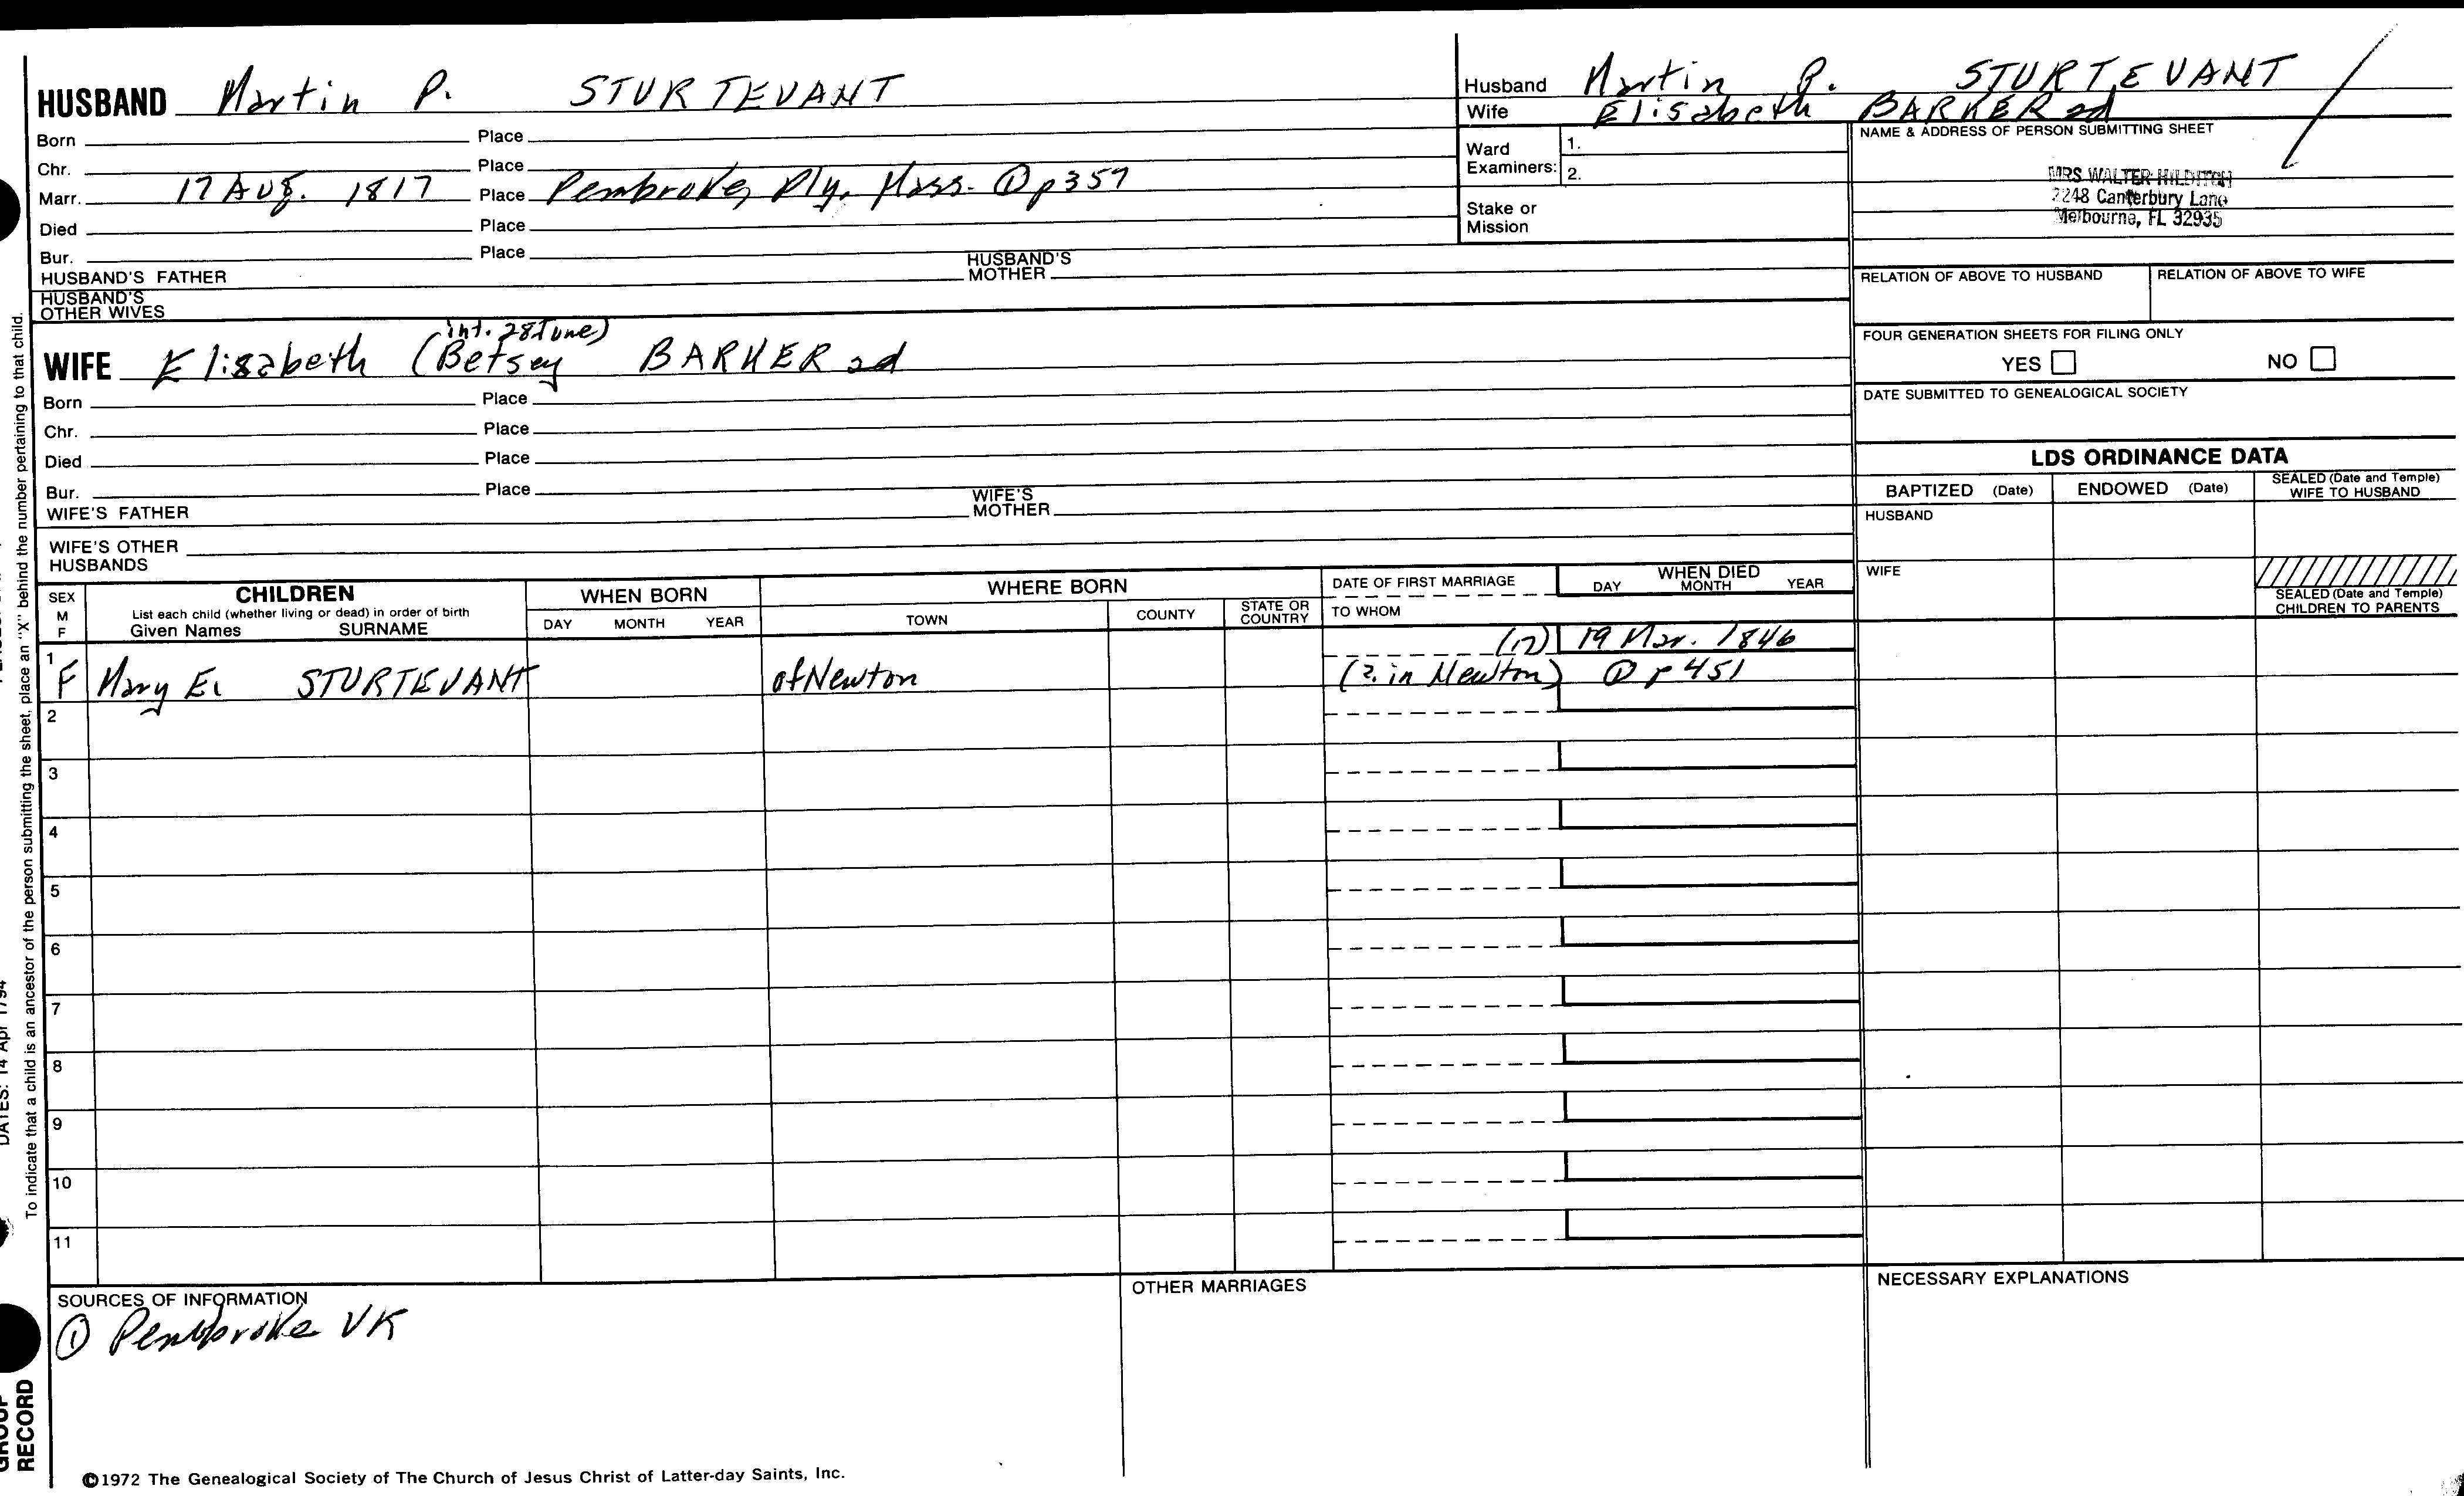 HUSBAND Martin P. STURTEVANT
Born Place
Chr. Place
Marr. 17 Aug. 1817 Place Pembroke, Ply. Mass. ① p357
Died Place
Bur. Place
HUSBAND'S FATHER HUSBAND'S MOTHER
HUSBAND'S OTHER WIVES
(int. 28 June)
WIFE Elisabeth (Betsey BARKER 2d
Born Place
Chr. Place
Died Place
Bur. Place
WIFE'S FATHER WIFE'S MOTHER
WIFE'S OTHER HUSBANDS
Husband Martin P. STURTEVANT
Wife Elisabeth BARKER 2d
Ward Examiners: 1.
2.
Stake or Mission
NAME & ADDRESS OF PERSON SUBMITTING SHEET
MRS WALTER HILDITCH
2248 Canterbury Lane
Melbourne, FL 32935
RELATION OF ABOVE TO HUSBAND RELATION OF ABOVE TO WIFE
FOUR GENERATION SHEETS FOR FILING ONLY
YES NO
DATE SUBMITTED TO GENEALOGICAL SOCIETY
LDS ORDINANCE DATA
BAPTIZED (Date) ENDOWED (Date) SEALED (Date and Temple) WIFE TO HUSBAND
HUSBAND
WIFE
SEALED (Date and Temple) CHILDREN TO PARENTS
SEX M F
CHILDREN
List each child (whether living or dead) in order of birth
Given Names SURNAME
WHEN BORN
DAY MONTH YEAR
WHERE BORN
TOWN COUNTY STATE OR COUNTRY
DATE OF FIRST MARRIAGE
TO WHOM
WHEN DIED
DAY MONTH YEAR
(17) 19 Mar. 1846
1 F Mary E. STURTEVANT of Newton (2. in Newton) ① p 451
2
3
4
5
6
7
8
9
10
11
SOURCES OF INFORMATION
① Pembroke VR
OTHER MARRIAGES
NECESSARY EXPLANATIONS
©1972 The Genealogical Society of The Church of Jesus Christ of Latter-day Saints, Inc.
To indicate that a child is an ancestor of the person submitting the sheet, place an "X" behind the number pertaining to that child.
DATES: 14 Apr 1794
GROUP
RECORD